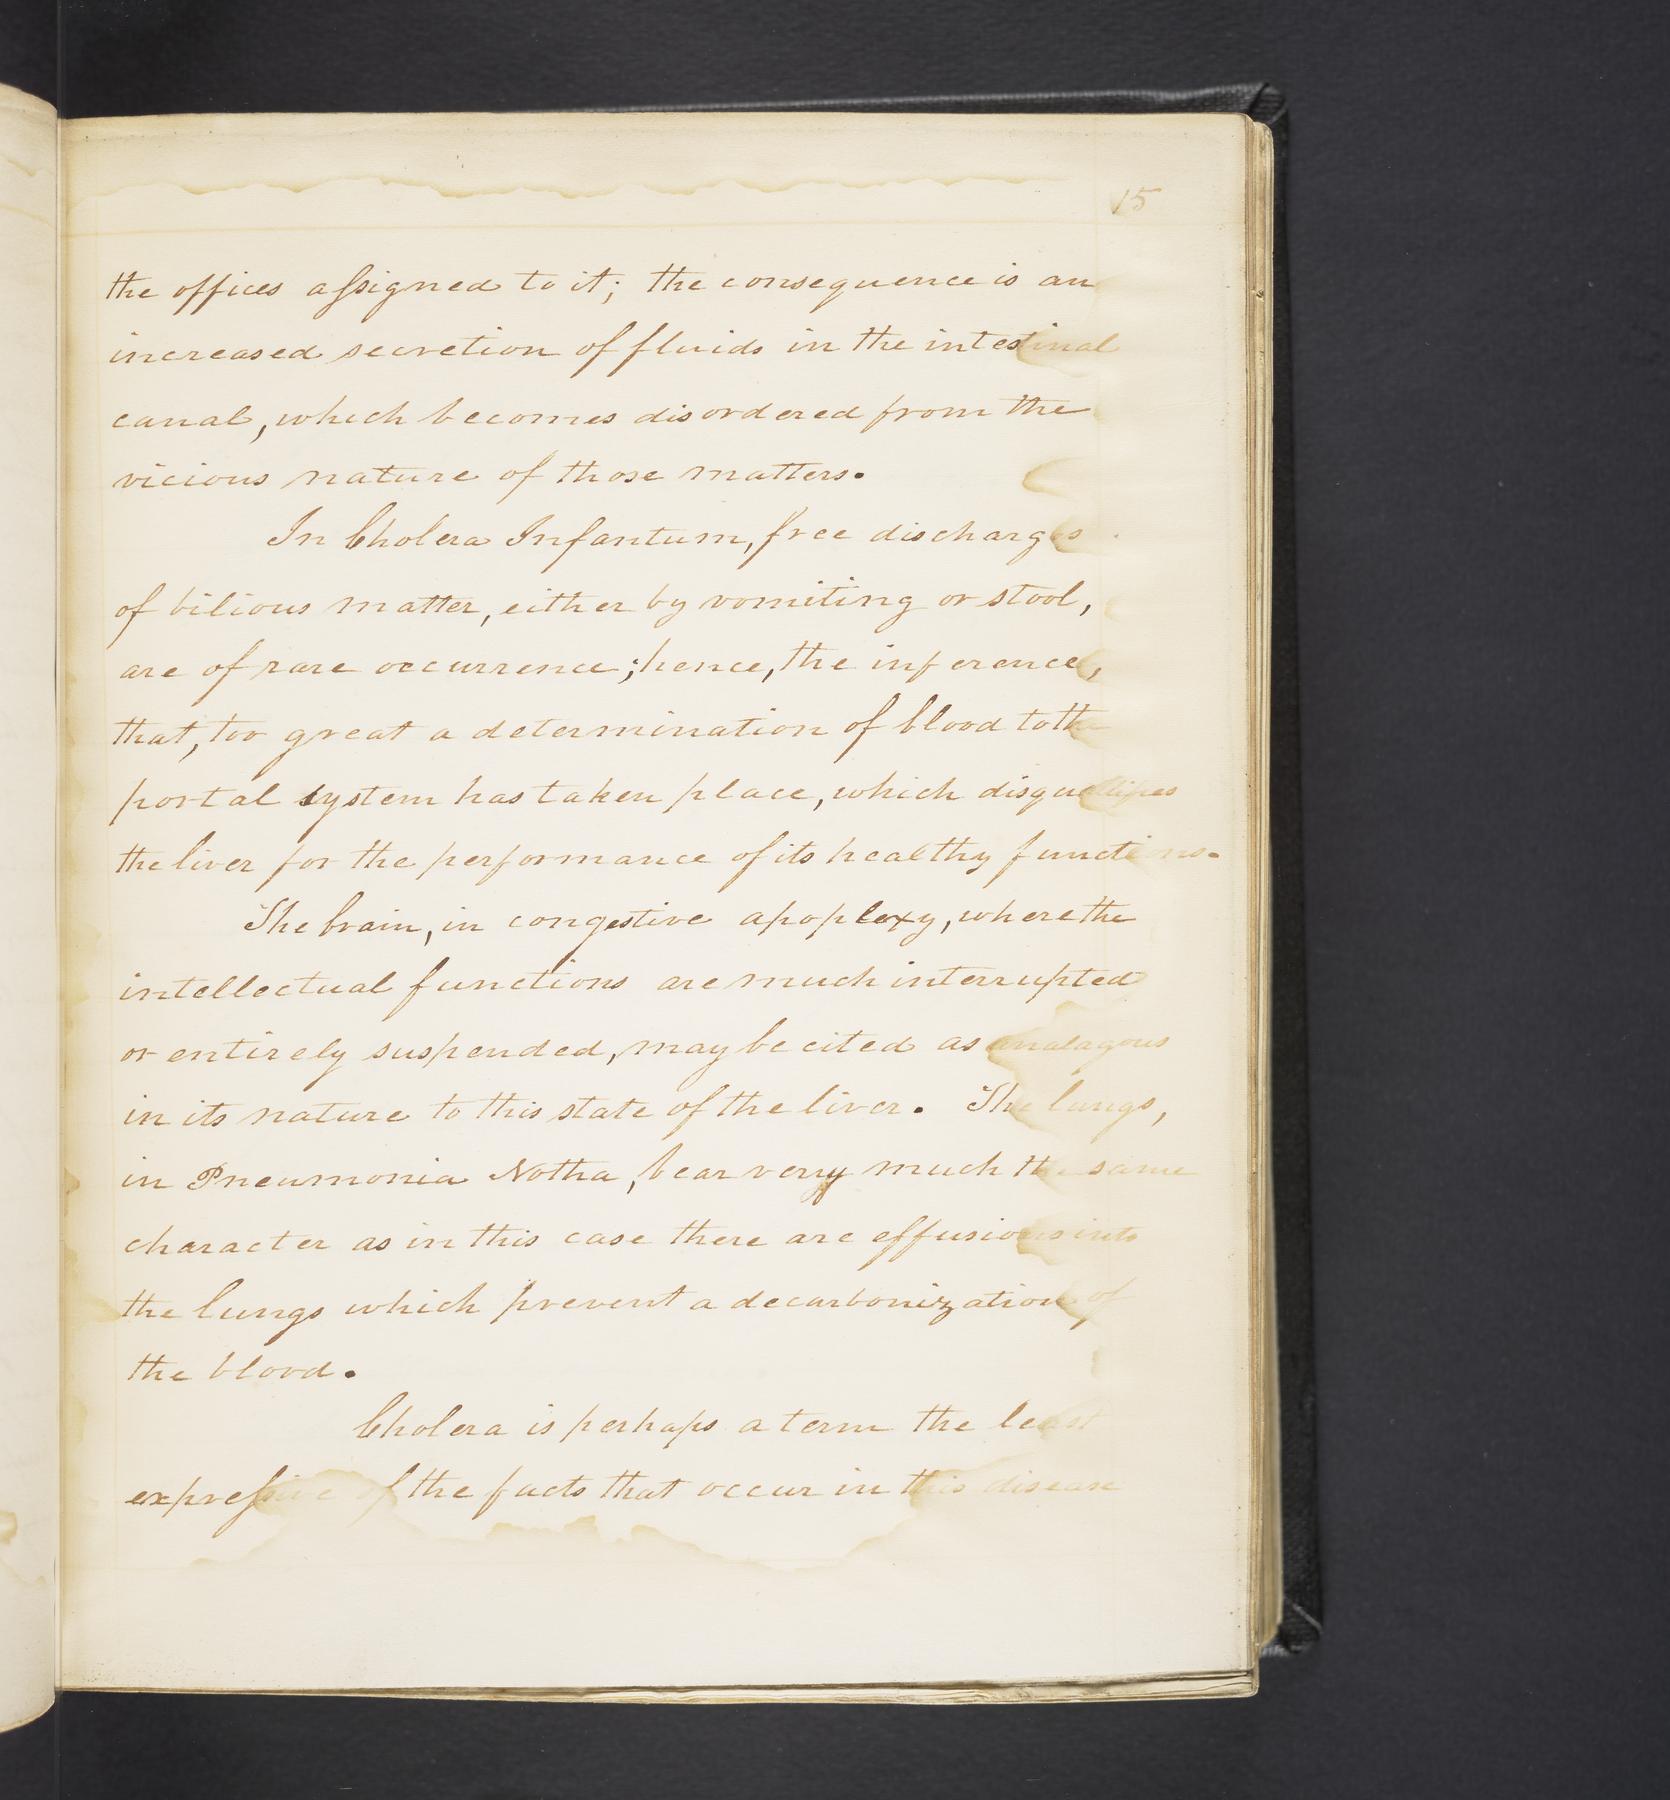 15
the offices assigned to it; the consequence is an
increased secretion of fluids in the intestinal
canal, which becomes disordered from the
vicious nature of those matters.
In Cholera Infantum, free discharges
of bilious matter, either by vomiting or stool,
are of rare occurrence; hence, the inference,
that, too great a determination of blood to the
portal system has taken place, which disqualifies
the liver for the performance of its healthy functions.
The brain, in congestive apoplexy, where the
intellectual functions are much interrupted
or entirely suspended, may be cited as analagous
in its nature to this state of the liver. The lungs,
in Pneumonia Notha, bear very much the same
character as in this case there are effusions into
the lungs which prevent a decarbonization of
the blood.
Cholera is perhaps a term the least
expressive of the facts that occur in this disease